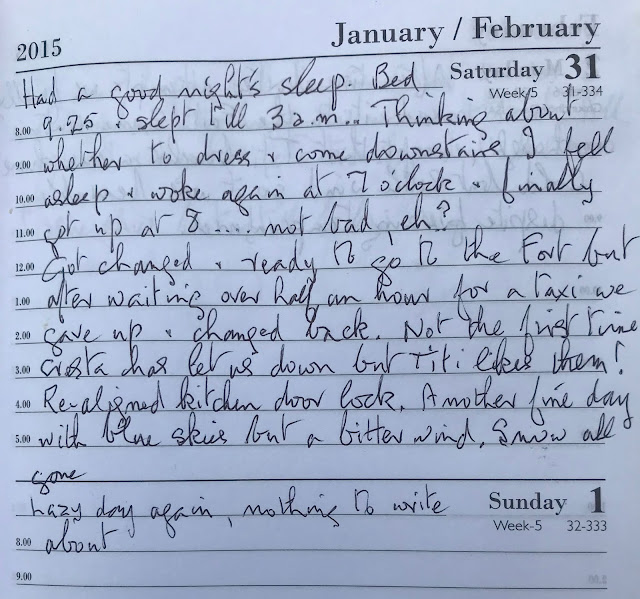 2015 January / February
Had a good night's sleep. Bed Saturday 31
Week-5 31-334
8.00 9.25 & slept till 3 a.m.. Thinking about
9.00 whether to dress & come downstairs I fell
10.00 asleep & woke again at 7 o'clock & finally
11.00 got up at 8 .... not bad, eh?
12.00 Got changed & ready to go to the Fort but
1.00 after waiting over half an hour for a taxi we
2.00 gave up & changed back. Not the first time
3.00 has let us down but Titi likes them!
4.00 Re-aligned kitchen door lock. Another fine day
5.00 with blue skies but a bitter wind. Snow all
gone
Lazy day again, nothing to write Sunday 1
Week-5 32-333
8.00 about
9.00